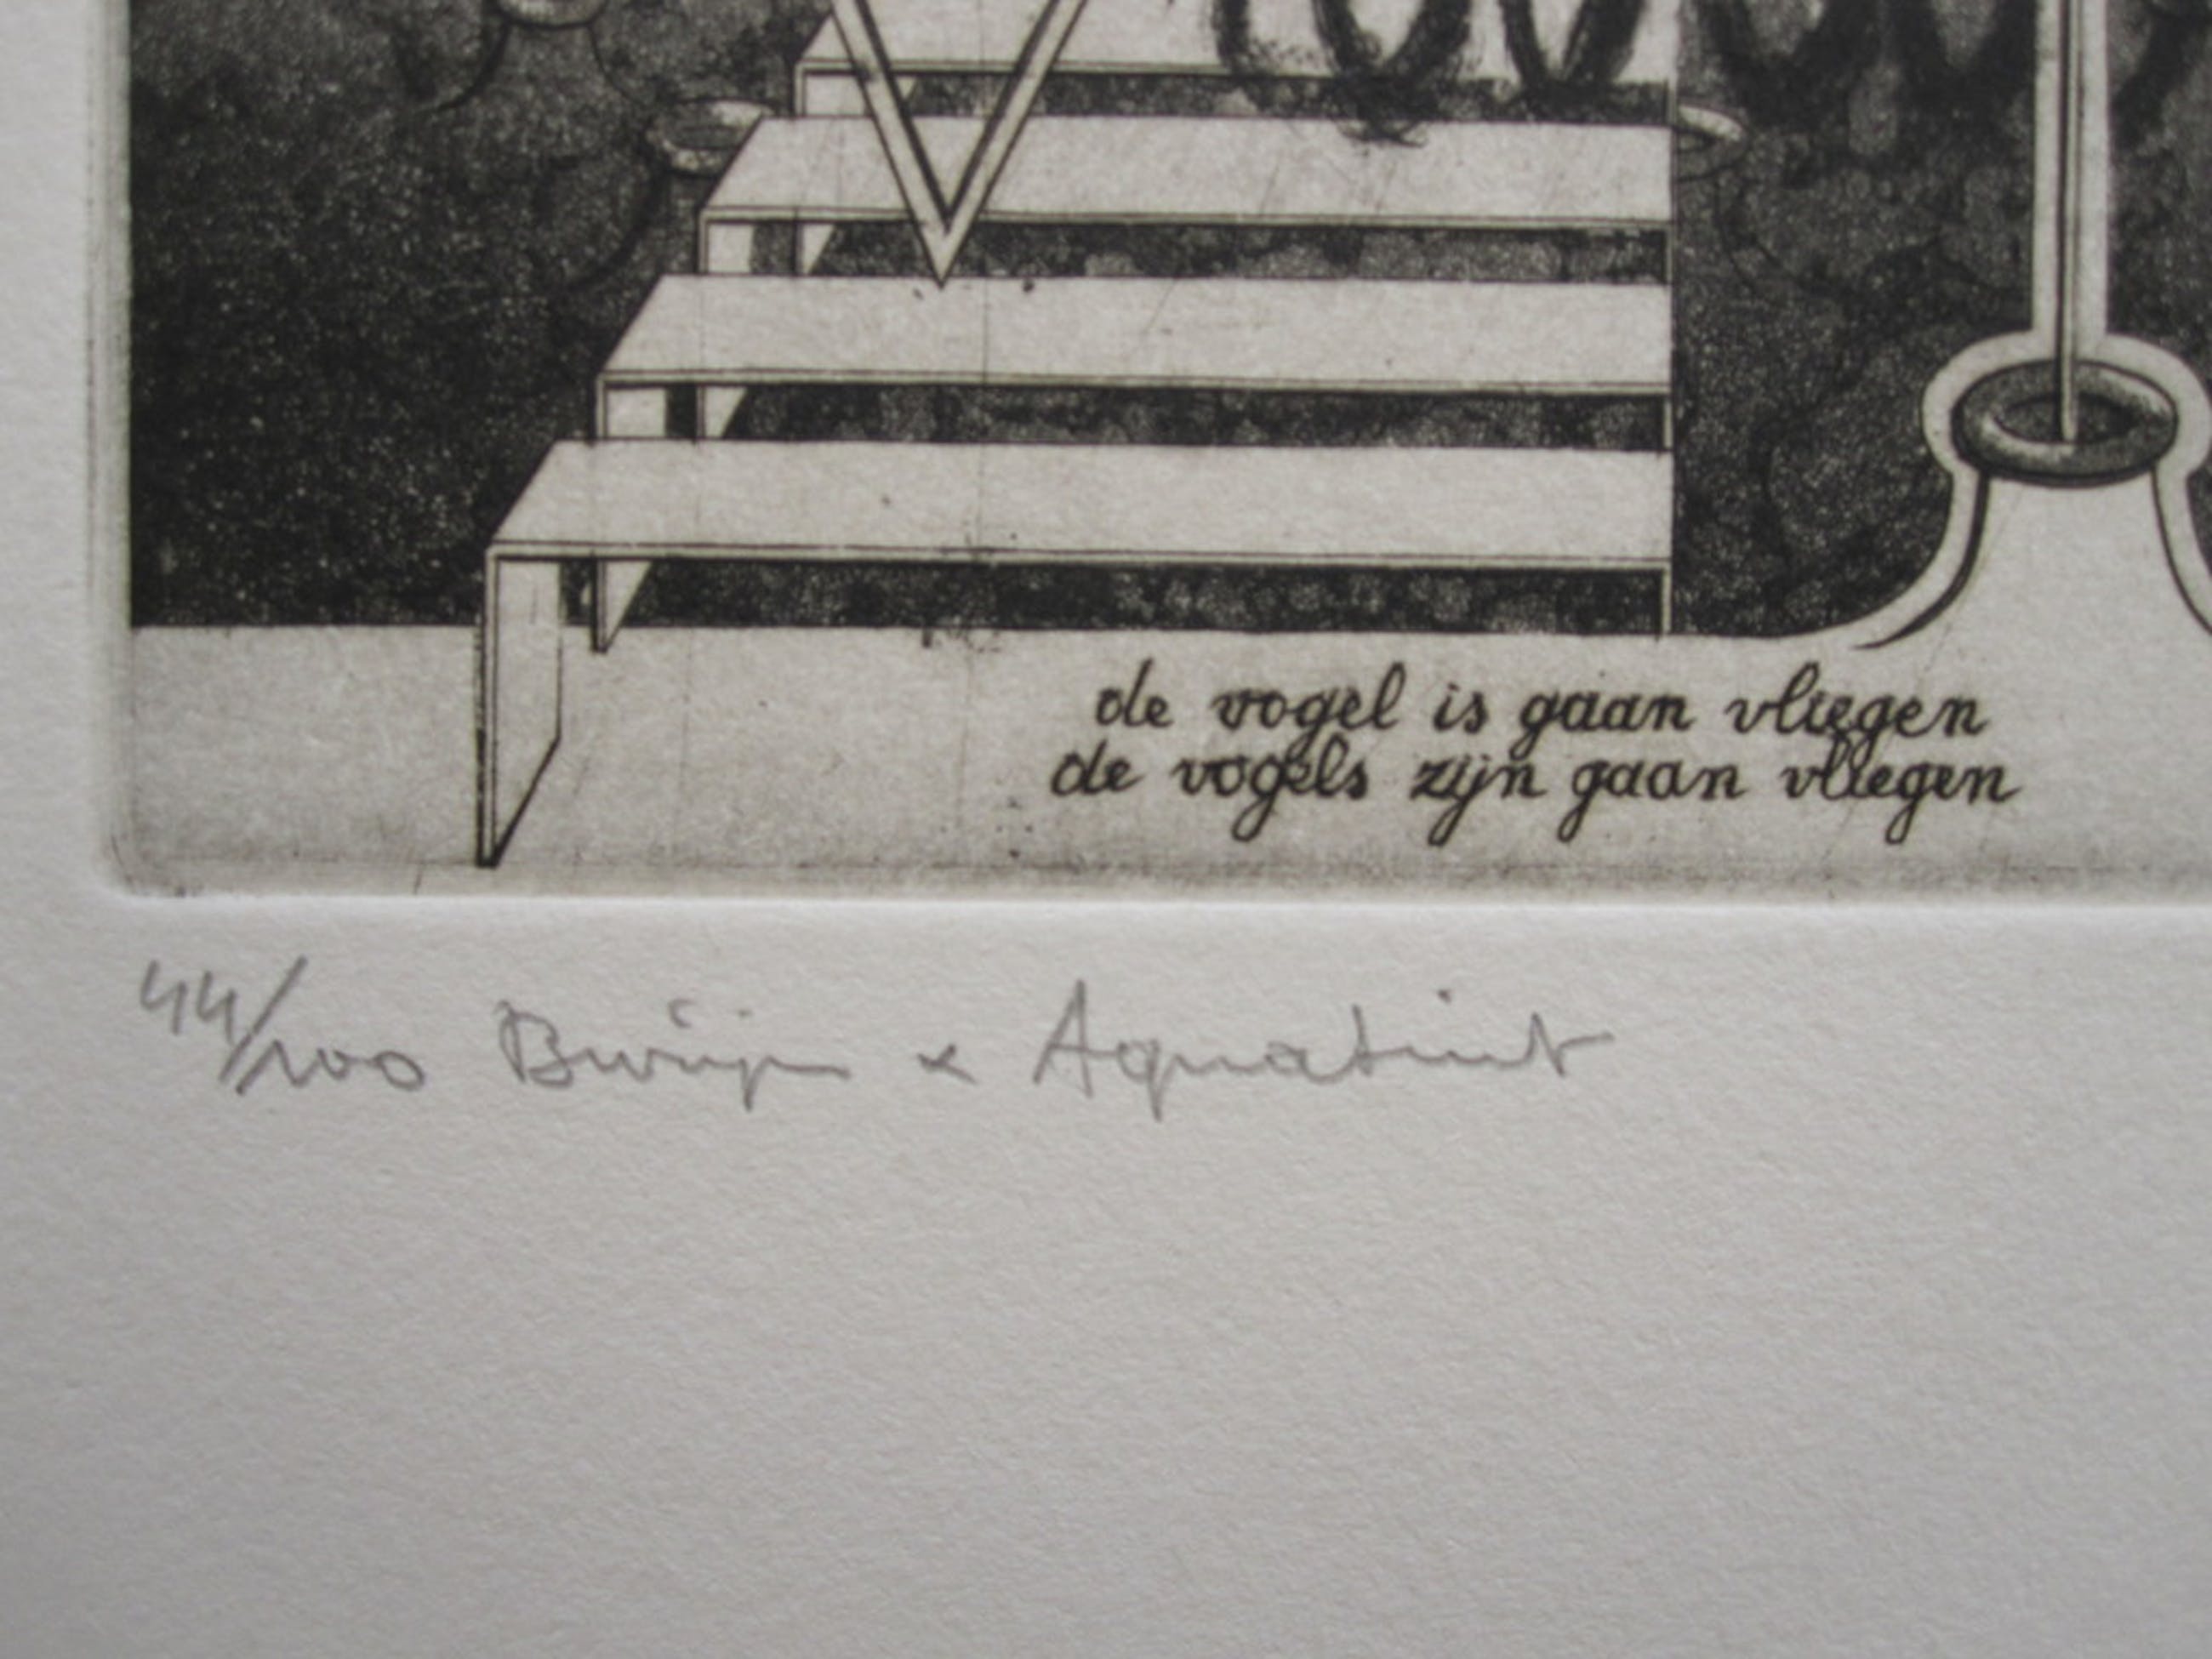 de vogel is gaan vliegen
de vogels zijn gaan vliegen
44/100 Burijn & Aquatint